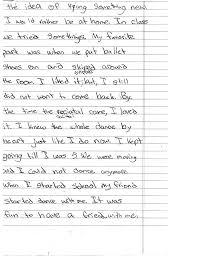 the idea of trying something new
I would rather be at home. In class
we tried somethings. My favorite
part was when we put ballet
shoes on and skiped around
the room. I liked it; but, I still
did not want to come back. By
the time the recital came, I loved
it. I knew the whole dance by
heart just like I do now. I kept
going till I was 5. We were moving
and I could not dance anymore
When I started school my friend
started dance with me. It was
fun to have a fried with me.